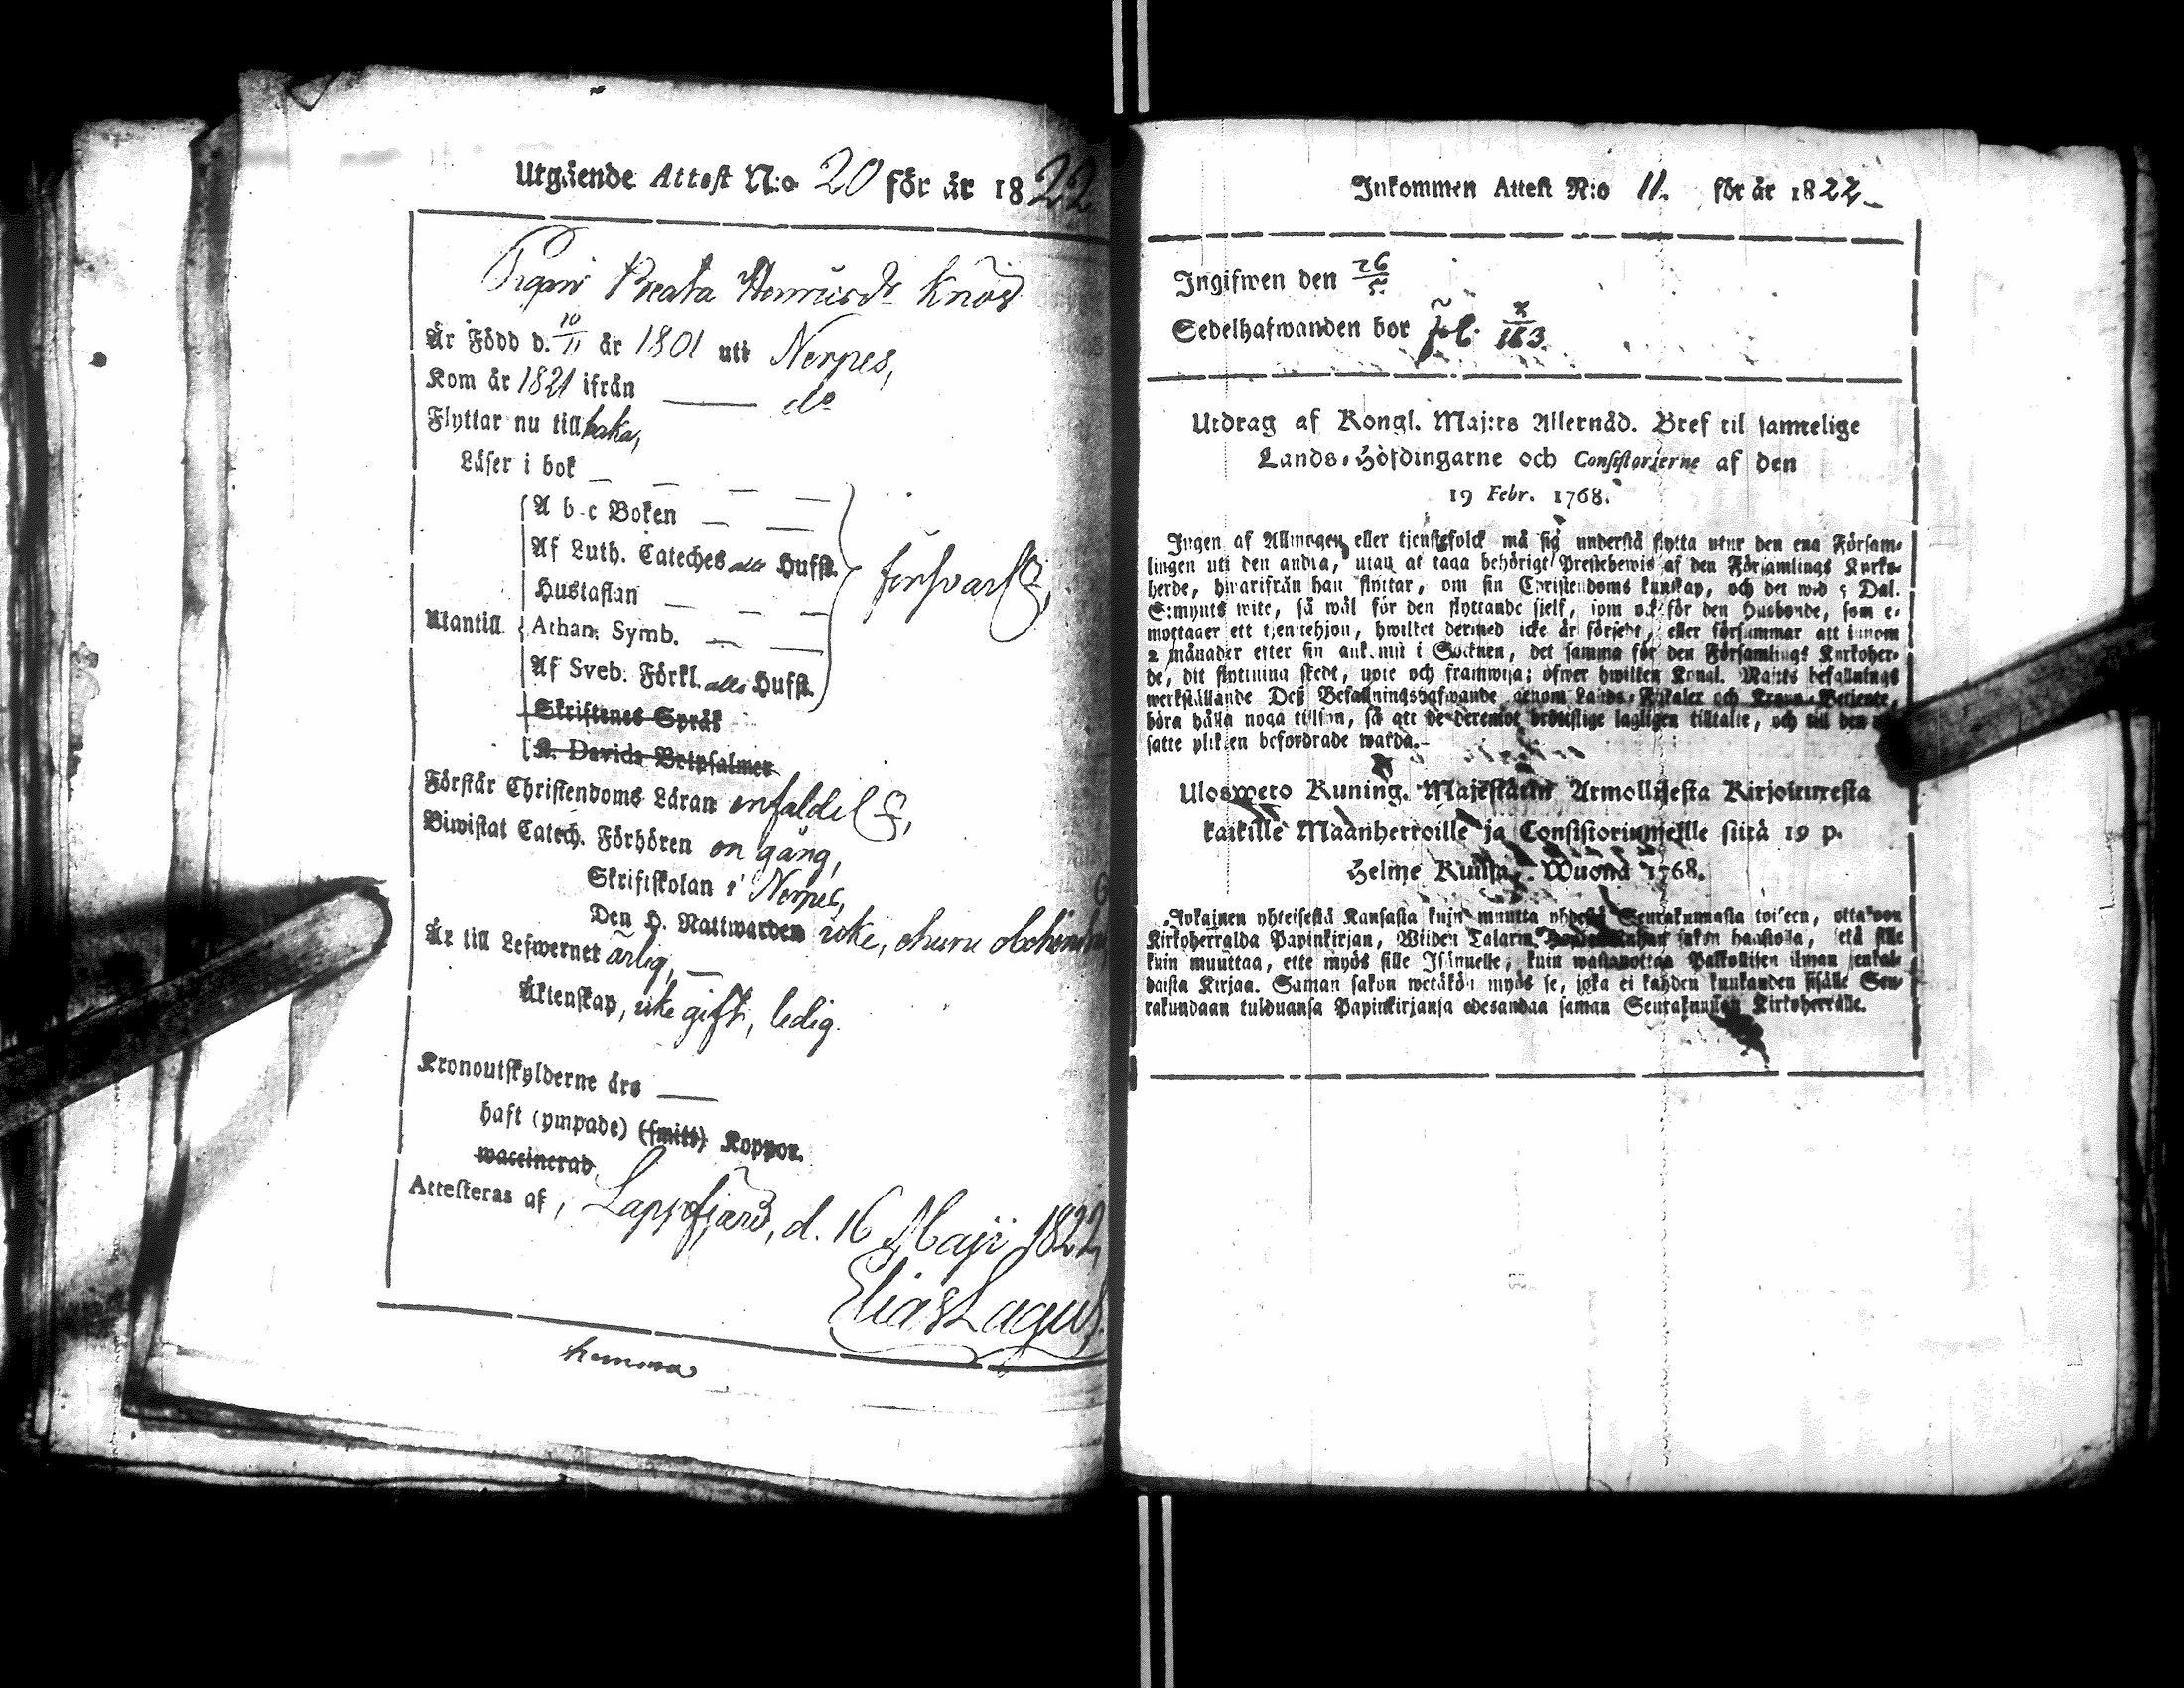 Utgående Attest N:o 20 för år 1822
Pigan Beata Henricsdr Knös
Är Född d. 10/11 år 1801 uti Nerpes,
Kom år 1821 ifrån — do
Flyttar nu tillbaka,
Läser i bok — — — —
A b c Boken — —
Af Luth. Cateches alla Hufst.
Hustaflan — — —
försvarl,
Utantill
Athan. Symb. — —
Af Sveb. Förkl. alla Hufst.
Skriftenes Språk
K. Davids Botpsalmer
Förstår Christendoms Läran enfaldel,
Biwistat Catech. Förhören en gång,
Skriftskolan i Nerpes,
Den H. Nattwarden icke, ehuru
Är till Lefwernet ärlig, —
Äktenskap, icke gift, ledig.
Kronoutskylderne års —
haft (ympade) (smitt) Koppor.
waccinerad
Attesteras af, Lappfjärd, d. 16 Maji 1822
Elias Lagus.
Inkommen Attest N:o 11. för år 1822
Ingifwen den 26/5
Sedelhafwanden bor fol. 163
Utdrag af Kongl. Maj:ts Allernåd. Bref til samtelige
Lands-Höfdingarne och Consistorierne af den
19 Febr. 1768.
Ingen af Allmogen eller tjenstefolck må sig understå flytta utur den ena Försam-
lingen uti den andra, utan at taga behörigt Prestebewis af den Församlings Kyrko-
herde, hwarifrån han flyttar, om sin Christendoms kunskap, och det wid 5 Dal.
S:mynts wite, så wäl för den flyttande sjelf, som ock för den Husbonde, som e-
mottager ett tjenstehjon, hwilket dermed icke är försedt, eller försummar att innom
2 månader efter sin ankomst i Socknen, det samma för den Församlings Kyrkoher-
de, dit flyttning skedt, upte och framwisa; öfwer hwilken Kongl. Maj:ts befallnings
werkställande Deß Befallningshafwande genom Lands-Fiskaler och Krono-Betjente,
böra hålla noga tillsyn, så att de deremot brottslige lagligen tilltalte, och till den
satte plikten befordrade warda.
Ulosweto Kuning. Majestätin Armollisesta Kirjoituxesta
kaikille Maanherroille ja Consistoriumeille siitä 19 p.
Helme Kuusa Wuona 1768.
Jokainen yhteisestä Kansasta kuin muutta yhdestä Seurakunnasta toiseen, ottakoon
Kirkoherralda Papinkirjan, Wiiden Talarin sakon haastolla, sekä sille
kuin muuttaa, ette myös sille Isännelle, kuin wastanottaa Palkollisen ilman senkal-
daista Kirjaa. Saman sakon wetäkön myös se, joka ei kahden kuukauden sisälle Seu-
rakundaan tulduansa Papinkirjansa edesandaa saman Seurakunnan Kirkoherralle.